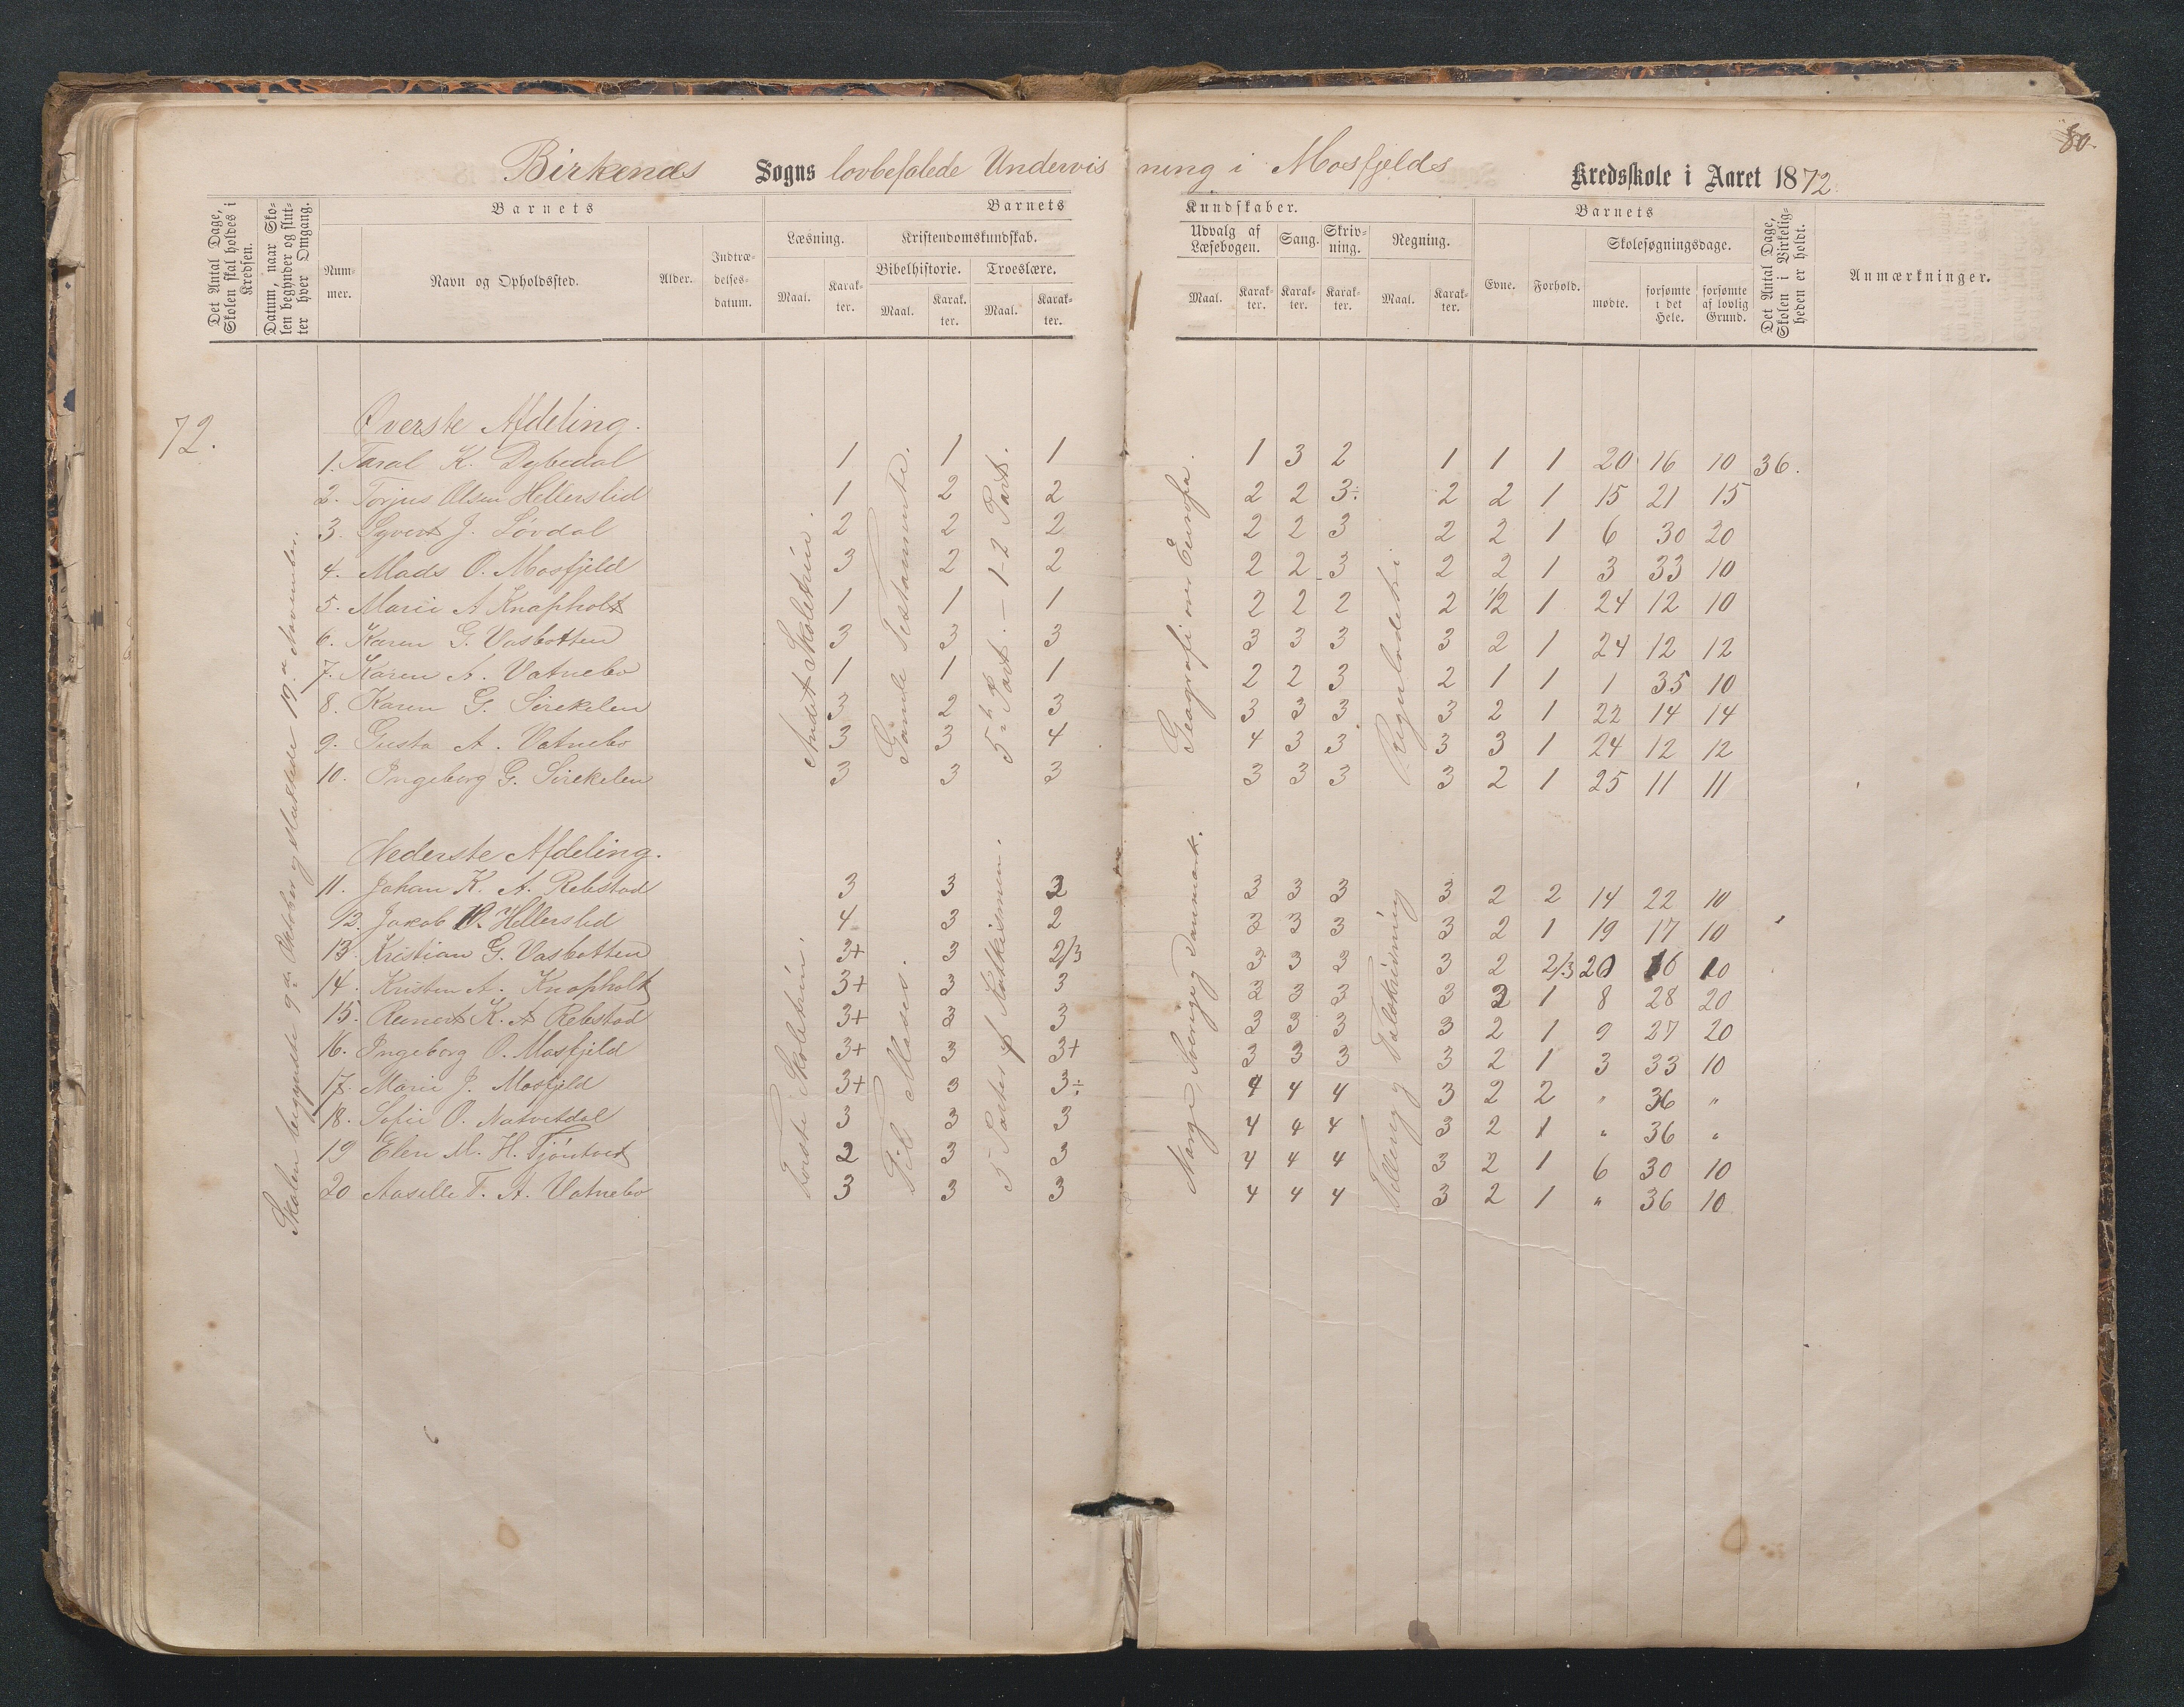 80.
Birkenæs Sogns lovbefalede Undervisning i Mosfjelds Kredsskole i Aaret 1872.
Det Antal Dage, Skolen skal holdes i Kredsen.
Datum, naar Skolen begynder og slutter hver Omgang.
Barnets
Nummer.
Navn og Opholdssted.
Alder.
Indtrædelsesdatum.
Barnets Kundskaber.
Læsning.
Maal.
Karakter.
Kristendomskundskab.
Bibelhistorie.
Maal.
Karakter.
Troeslære.
Maal.
Karakter.
Udvalg af Læsebogen.
Maal.
Karakter.
Sang.
Karakter.
Skrivning.
Karakter.
Regning.
Maal.
Karakter.
Barnets
Evne.
Forhold.
Skolesøgningsdage.
mødte.
forsømte i det Hele.
forsømte af lovlig Grund.
Det Antal Dage, Skolen i Virkeligheden er holdt.
Anmærkninger.
72.
Skolen begyndte 9de Oktober og sluttede 19de November.
Øverste Afdeling.
Andet Skoletrin.
Gamle Testamente.
5te Part. – 1-2 Part.
Geografi over Europa.
Regulodetri
1. Taral K. Dybedal 1 1 1 1 3 2 1 1 1 20 16 10 36.
2. Torjus Olsen Hellerslid 1 2 2 2 2 3÷ 2 2 1 15 21 15
3. Syvert J. Lövdal 2 2 2 2 2 3 2 2 1 6 30 20
4. Mads O. Mosfjeld 3 2 2 2 2 3 2 2 1 3 33 10
5. Marie A Knapholt 1 1 1 2 2 2 2 1/2 1 24 12 10
6. Karen G. Vasbotten 3 3 3 3 3 3 3 2 1 24 12 12
7. Karen A. Vatnebo 1 1 1 2 2 3 2 1 1 1 35 10
8. Karen G. Sirekelen 3 2 3 3 3 3 3 2 1 22 14 14
9. Gusta A. Vatnebo 3 3 4 4 3 3 3 3 1 24 12 12
10. Ingeborg G. Sirekelen 3 3 3 3 3 3 3 2 1 25 11 11
Nederste Afdeling.
Første Skoletrin.
Til Moses.
5 Parter af Katkismen.
Norge, Sverige og Danmark.
Tælling og Talskrivning
11. Johan K. A. Rebstad 3 3 2 3 3 3 3 2 2 14 22 10
12. Jakob O. Hellerslid 4 3 2 3 3 3 3 2 1 19 17 10
13. Kristian G. Vasbotten 3+ 3 2/3 3 3 3 3 2 2/3 20 16 10
14. Kristen A. Knapholt 3+ 3 3 3 3 3 3 2 1 8 28 20
15. Reinert K. A Rebstad 3+ 3 3 3 3 3 3 2 1 9 27 20
16. Ingeborg O. Mosfjeld 3+ 3 3+ 3 3 3 3 2 1 3 33 10
17. Marie J. Mosfjeld 3+ 3 3÷ 4 4 4 3 2 2 " 36 "
18. Sofie O. Natvetdal 3 3 3 4 4 4 3 2 1 " 36 "
19 Elen M. H. Tjöntvet 2 3 3 4 4 4 3 2 1 6 30 10
20 Aasille T. A. Vatnebo 3 3 3 4 4 4 3 2 1 " 36 10